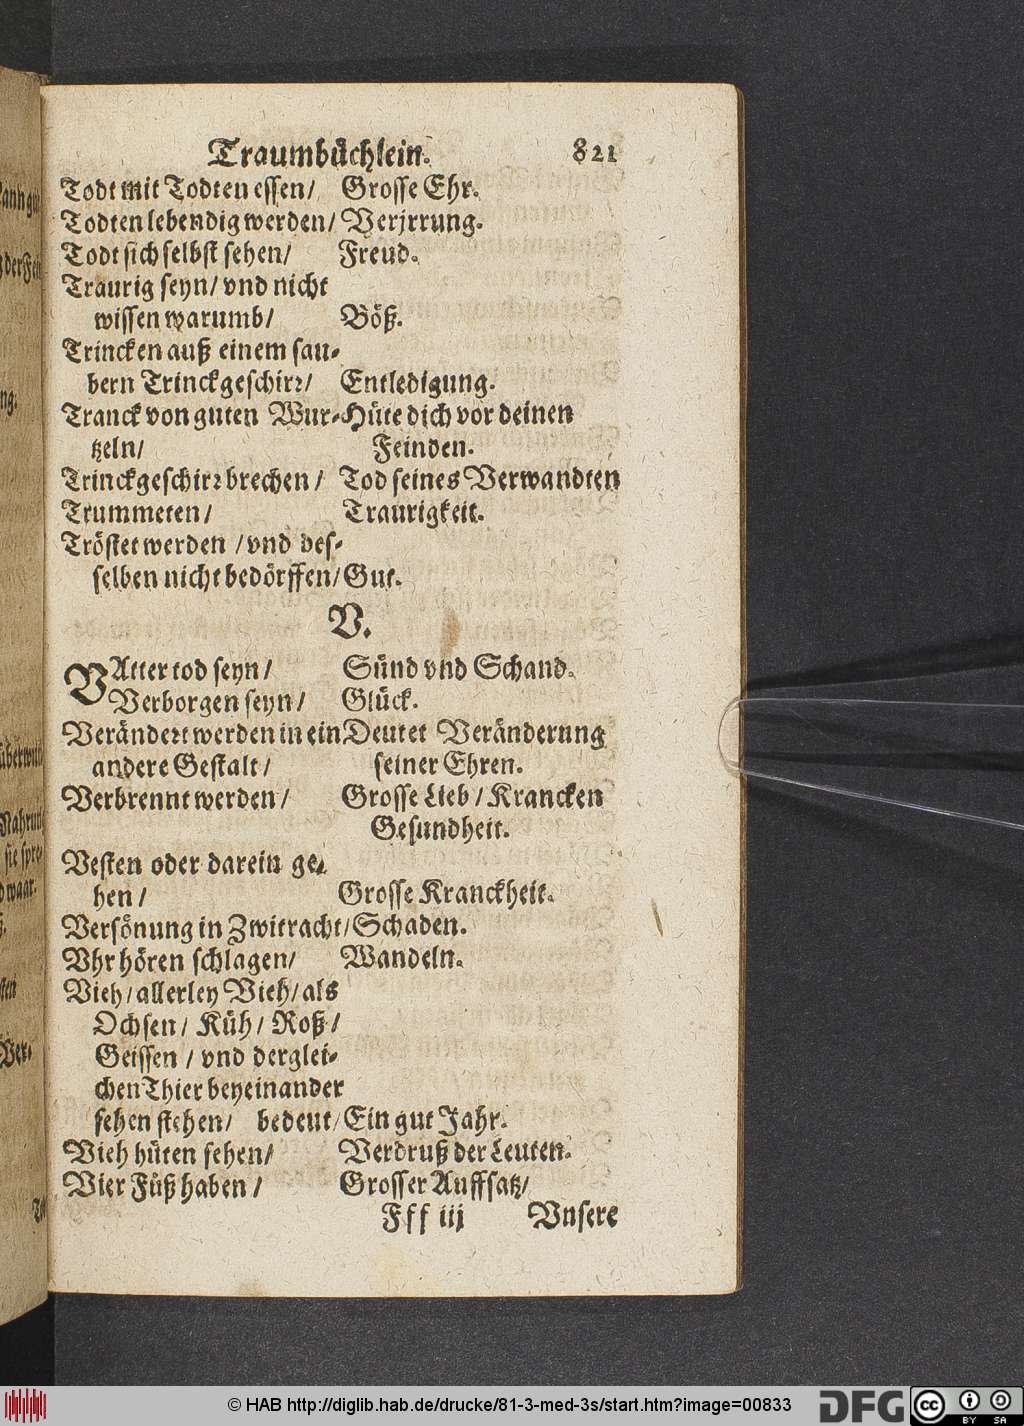 Traumbüchlein. 821
Todt mit Todten essen/ Grosse Ehr.
Todten lebendig werden/ Verjrrung.
Todt sich selbst sehen/ Freud.
Traurig seyn/ vnd nicht
wissen warumb/ Böß.
Trincken auß einem sau-
bern Trinckgeschirr/ Entledigung.
Tranck von guten Wur- Hüte dich vor deinen
tzeln/ Feinden.
Trinckgeschirr brechen/ Tod seines Verwandten
Trummeten/ Traurigkeit.
Tröstet werden/ vnd des-
selben nicht bedörffen/ Gut.
V.
VAtter tod seyn/ Sünd vnd Schand.
Verborgen seyn/ Glück.
Verändert werden in ein Deutet Veränderung
andere Gestalt/ seiner Ehren.
Verbrennt werden/ Grosse Lieb/ Krancken
Gesundheit.
Vesten oder darein ge-
hen/ Grosse Kranckheit.
Versönung in Zwitracht/ Schaden.
Vhr hören schlagen/ Wandeln.
Vieh/ allerley Vieh/ als
Ochsen/ Küh/ Roß/
Geissen/ vnd derglei-
chen Thier beyeinander
sehen stehen/ bedeut/ Ein gut Jahr.
Vieh hüten sehen/ Verdruß der Leuten.
Vier Füß haben/ Grosser Auffsatz/
Fff iij Vnsere
© HAB http://diglib.hab.de/drucke/81-3-med-3s/start.htm?image=00833
DFG
cc
BY SA